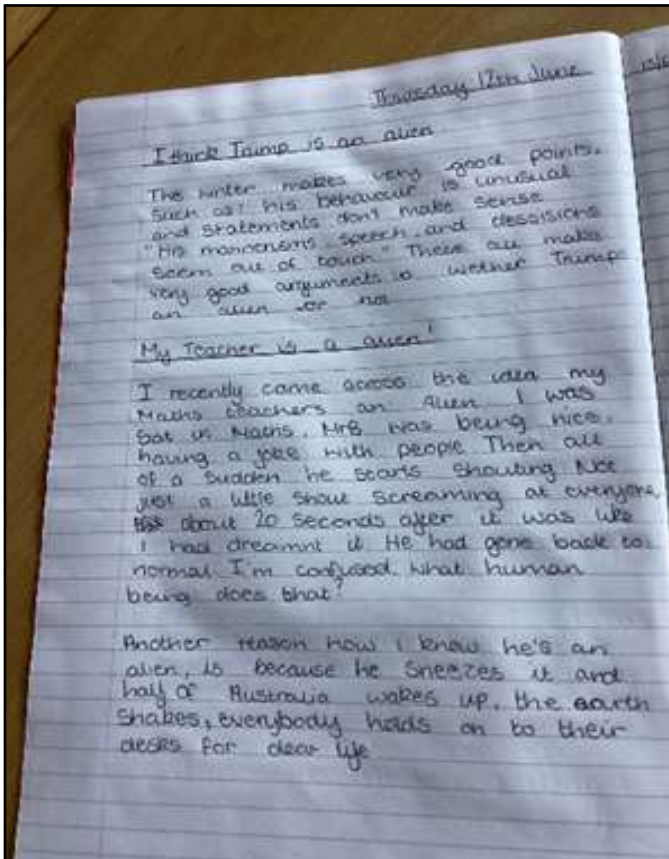 Thursday 12th June
I think Trump is an alien
The writer makes very good points.
Such as: his behaviour is unusual
and statements don't make sense
"His mannerisms, speech, and dessisions
Seem out of touch." These all make
very good arguments o wether Trump
an alien or not
My Teacher is a alien!
I recently came across the idea my
Maths teachers an Alien I was
Sat in Maths. MrB was being nice.
having a joke with people Then out
of a sudden he starts shouting Not
just a little shout screaming at everyone
about 20 seconds after it was like
I had dreamnt it He had gone back to
normal I'm confused. What human
being does that?
Another reason how I know he's an
alien, is because he Sneezes it and
half of Australia wakes up, the earth
Shakes, everybody holds on to their
desks for dear life